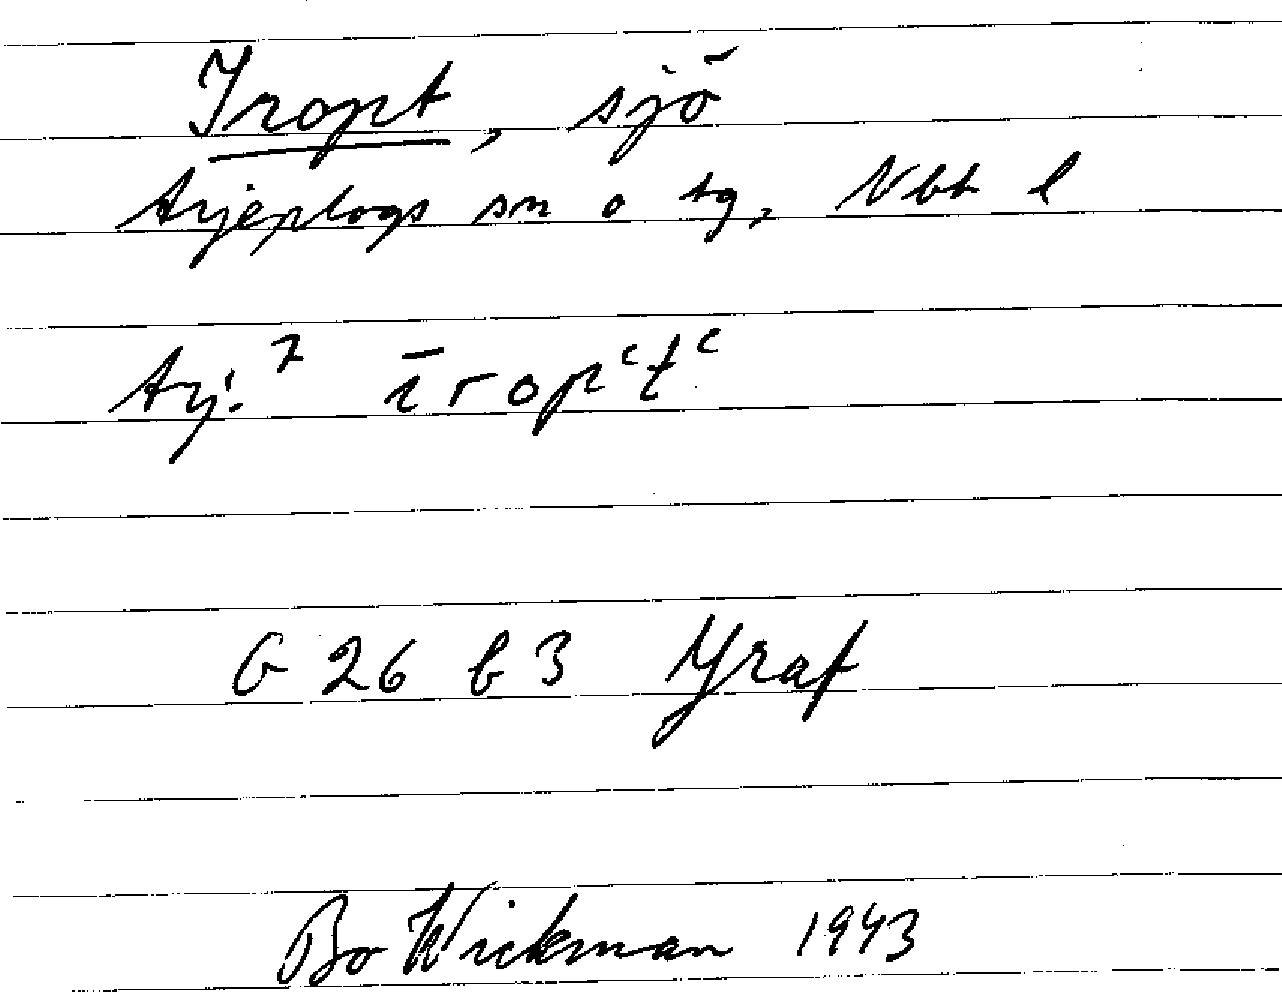 Iropt, sjö
Arjeplogs sn o tg, Nbt l
Arj:7 īropʿtʿ
G 26 b 3 Graf
Bo Wickman 1943